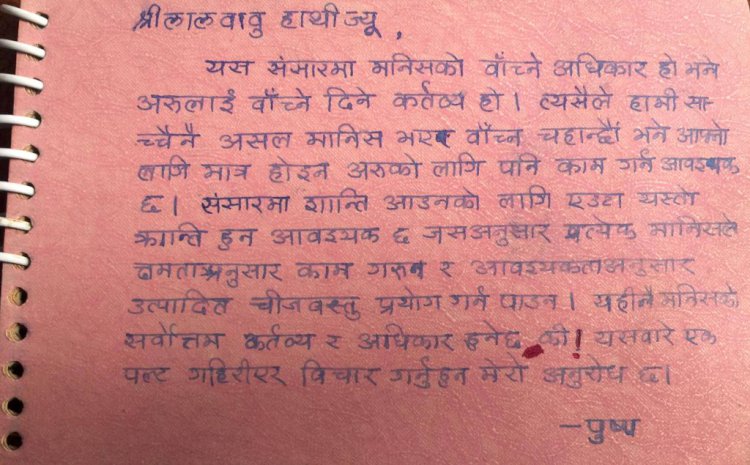 श्रीलाल वावु हाथी ज्यू,
यस संसारमा मनिसको वाँच्ने अधिकार हो भने
अरुलाई वाँच्ने दिने कर्तव्य हो । त्यसैले हामी सा-
च्चैनै असल मानिस भएर वाँच्न चहान्छौं भने आफ्नो
लागि मात्र होइन अरुको लागि पनि काम गर्न आवश्यक
छ । संसारमा शान्ति आउनको लागि एउटा यस्तो
क्रान्ति हुन आवश्यक छ जसअनुसार प्रत्येक मानिसले
क्षमताअनुसार काम गरुन र आवश्यकताअनुसार
उत्पादित चीजवस्तु प्रयोग गर्न पाउन । यहीनै मनिसको
सर्वोत्तम कर्तव्य र अधिकार हुनेछ की! यसवारे एक
पल्ट गहिरीएर विचार गर्नुहुन मेरो अनुरोध छ।
-पुष्प